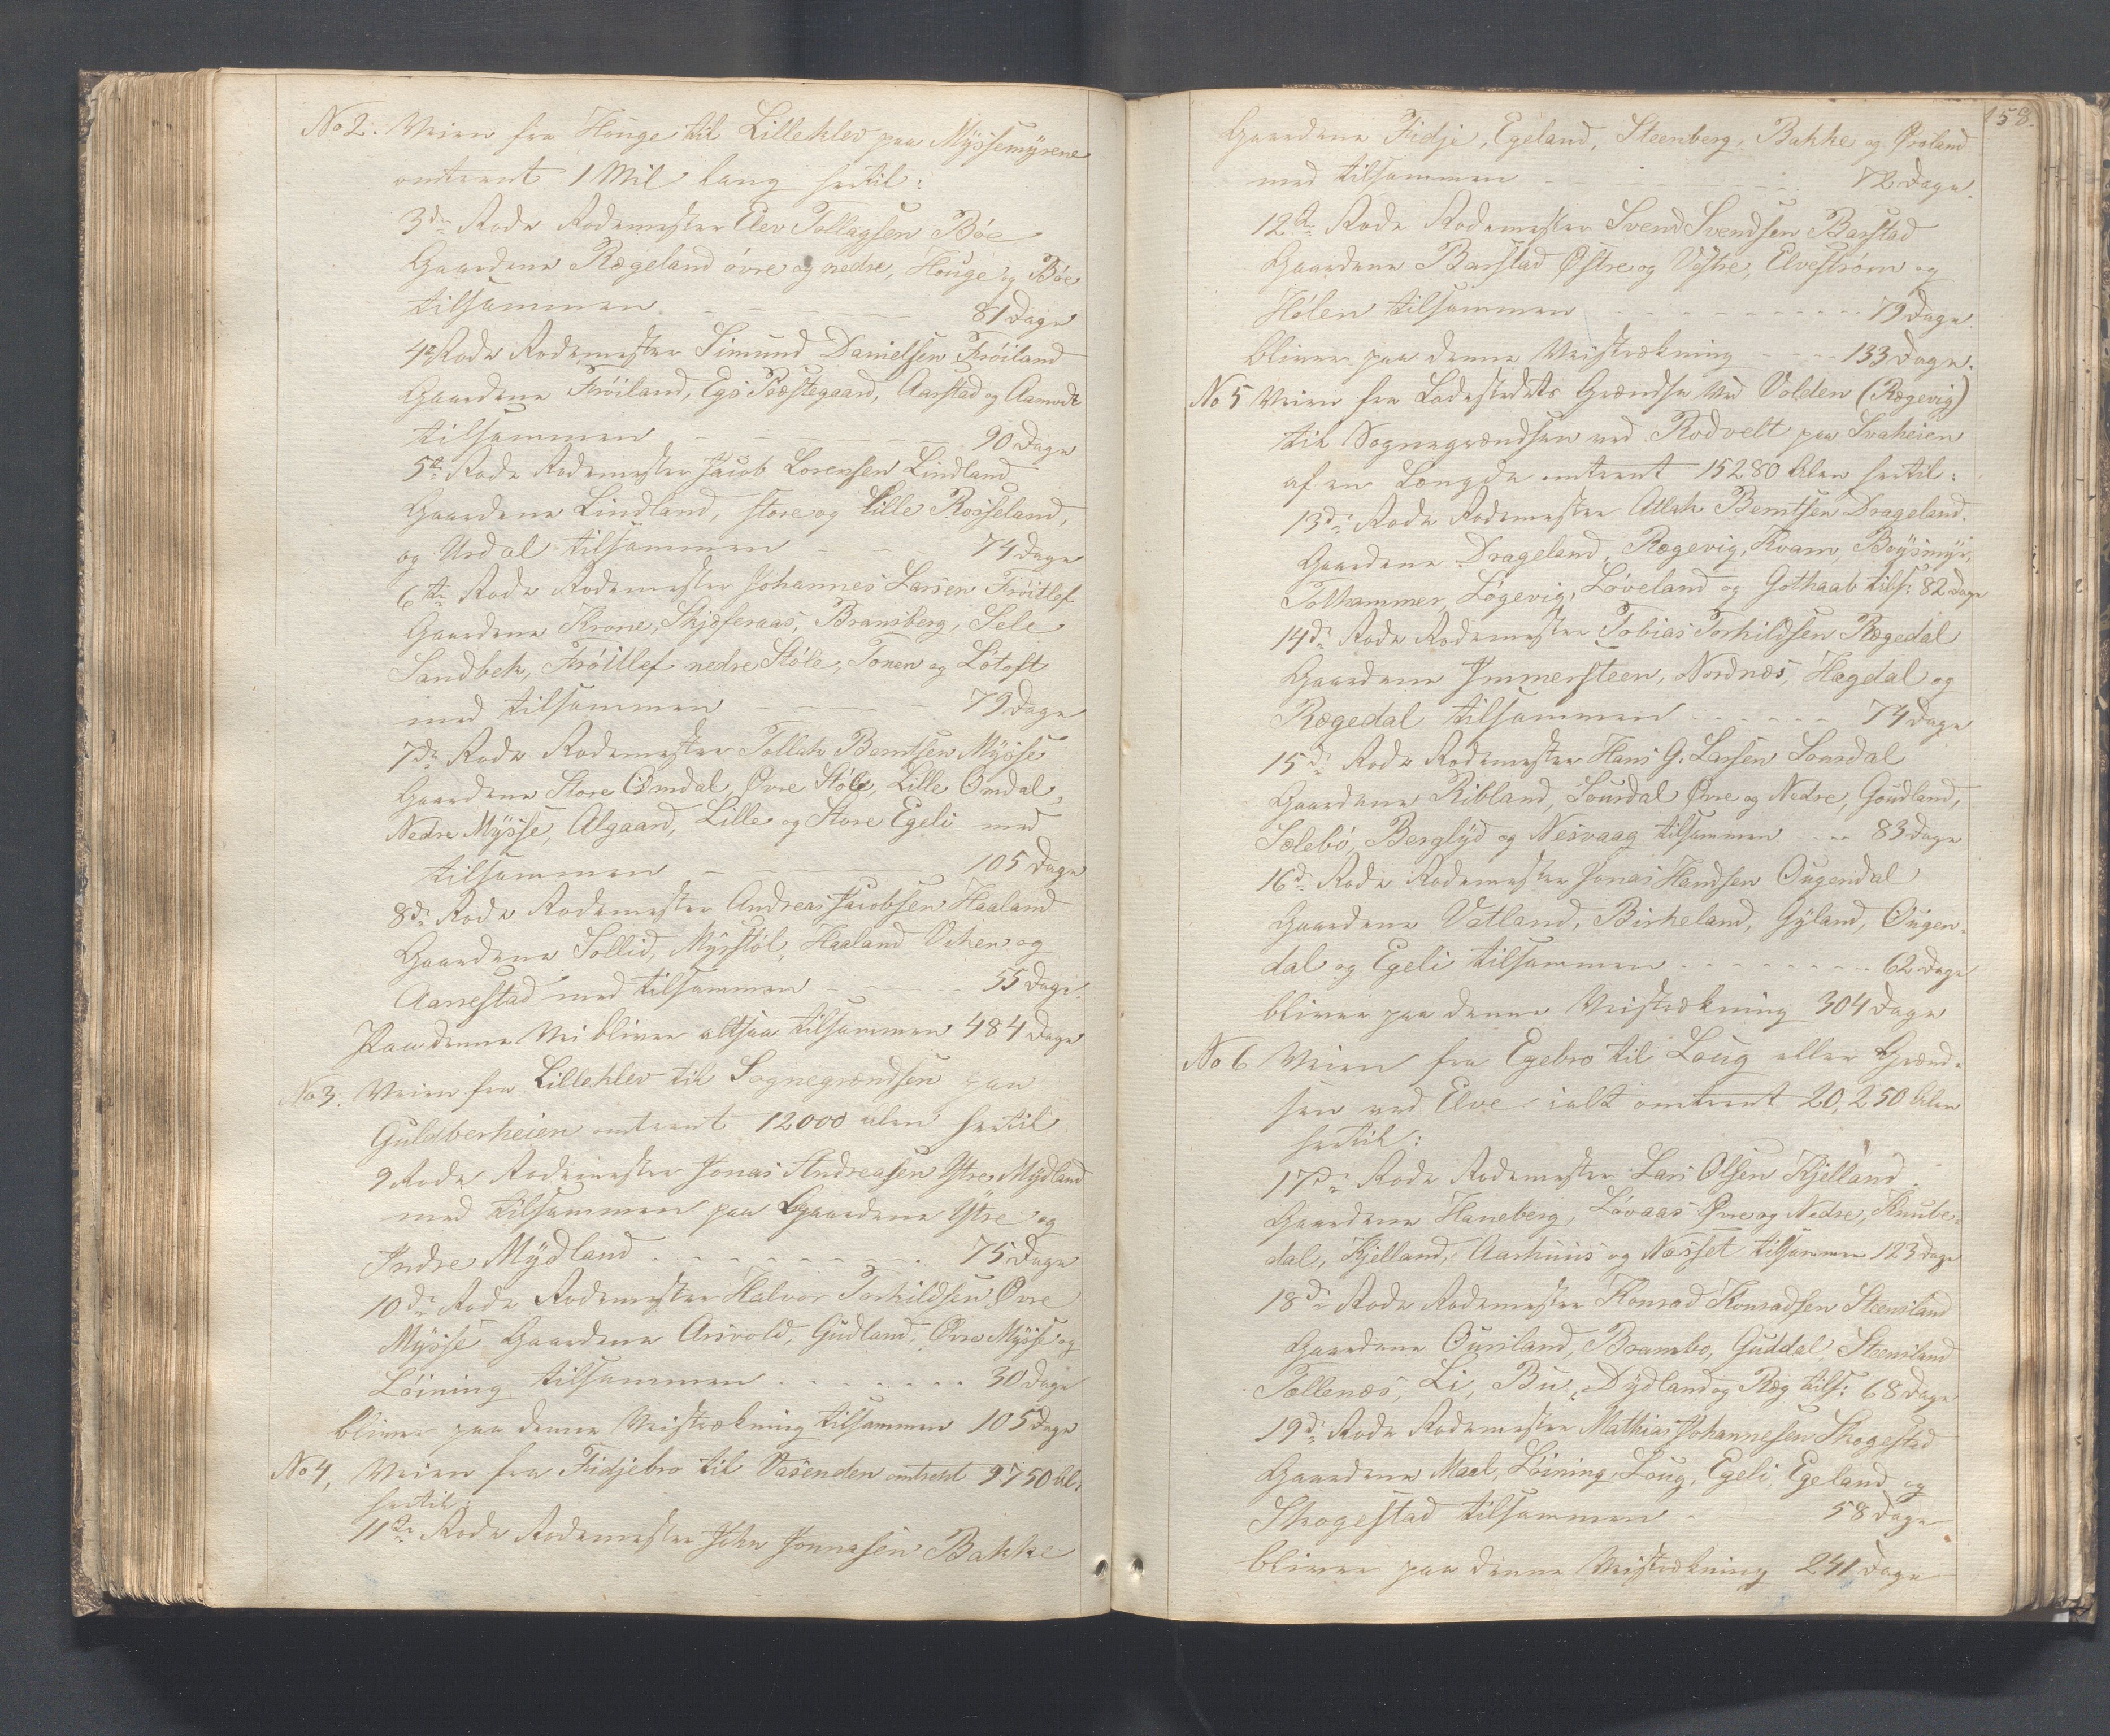 No 2. Veien fra Houge til Lilleklev paa Myssemyrene
omtrent 1 Mil lang hertil:
3de Rode Rodemester Elev Tollagsen Böe
Gaardene Rægeland övre og nedre, Houge og Böe
tilsammen 81 Dage
4de Rode Rodemester Simund Danielsen Fröiland
Gaardene Fröiland, Egs Præstegaard, Aarstad og Aamodt
tilsammen 90 Dage
5te Rode Rodemester Jacob Lorensen Lindland
Gaardene Lindland, store og lille Rosseland,
og Urdal tilsammen 74 Dage
6te Rode Rodemester Johannes Larsen Fröitlef
Gaardene Krone, Skjæferaas, Bransberg, Sele
Sandbek, Fröitlef nedre Stöle, Tonen og Lötoft
med tilsammen 79 Dage
7de Rode Rodemester Tollak Berntsen Mysse
Gaardene Store Omdal, Övre Stöle, Lille Omdal,
Nedre Mysse, Algaard, Lille og Store Egeli med
tilsammen 105 Dage
8de Rode Rodemester Andreas Jacobsen Haaland
Gaardene Sollid, Myrstöl, Haaland Viken og
Aarrestad med tilsammen 55 Dage.
Paa denne Vei bliver altsaa tilsammen 484 Dage
No 3. Veien fra Lilleklev til Sognegrændsen paa
Guldberheien omtrent 12000 alen hertil
9 Rode Rodemester Jonas Andreasen Ytre Mydland
med tilsammen paa Gaardene Ytre og
Indre Mydland 75 Dage
10de Rode Rodemester Halvor Torkildsen Övre
Mysse Gaardene Arsvold, Gudland, Övre Mysse og
Löining tilsammen 30 Dage
bliver paa denne Veistrækning tilsammen 105 Dage
No 4, Veien fra Fidjebro til Vasenden omtrent 9750 Al.
hertil:
11te Rode Rodemester John Jonnasen Bakke
158.
Gaardene Fidje, Egeland, Steenberg, Bakke og Öroland
med tilsammen 72 Dage.
12te Rode Rodemester Svend Svendsen Barstad
Gaardene Barstad Östre og Vestre, Elveström og
Hölen tilsammen 79 Dage
bliver paa denne Veistrækning 133 Dage.
No 5 Veien fra Ladestedets Grændse ved Volden (Rægevig)
til Sognegrændsen ved Rodvelt paa Svaheien
af en Længde omtrent 15280 Alen hertil:
13de Rode Rodemester Atlak Berntsen Drageland.
Gaardene Drageland, Rægevig, Kvam, Böysmyr,
Tothammer, Lögevig, Löveland og Gothaab tils: 82 Dage
14de Rode Rodemester Tobias Torkildsen Rægedal
Gaardene Immersteen, Nordnæs, Hægdal og
Rægedal tilsammen 74 Dage
15de Rode Rodemester Hans G. Larsen Sonrdal
Gaardene Ribland, Sourdal Övre og Nedre, Goudland,
Sælebö, Berglyd og Nesvaag tilsammen 83 Dage
16de Rode Rodemester Jonas Handsen Ougendal
Gaardene Vatland, Birkeland, Gyland, Ougen-
dal og Egeli tilsammen 62 Dage
bliver paa denne Veistrækning 304 Dage
No 6 Veien fra Egebro til Loug eller Grænd-
sen ved Elve ialt omtrent 20,250 Alen
hertil:
17de Rode Rodemester Lars Olsen Kjelland
Gaardene Haneberg, Lövaas Övre og Nedre, Knube-
dal, Kjelland, Aarhuus og Næsset tilsammen 123 Dage
18de Rode Rodemester Konrad Konradsen Steensland
Gaardene Ousland, Brambo, Guddal, Steensland
Tællenæs, Li, Bu, Dydland og Ræg tils: 68 Dage
19de Rode Rodemester Mathias Johannesen Skogestad
Gaardene Mael, Löining, Loug, Egeli, Egeland og
Skogestad tilsammen 58 Dage
bliver paa denne Veistrækning 241 Dage